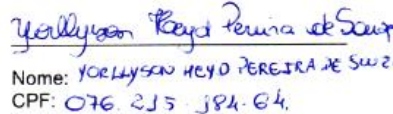 Yorllyson Heyd Pereira de Souza
Nome: YORLLYSON HEYD PEREIRA DE SOUZ
CPF: 076.215.184-64.